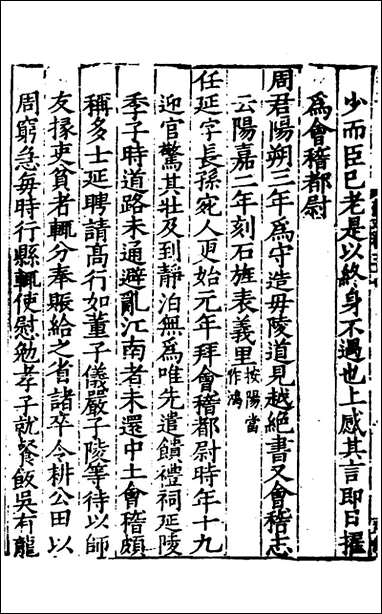 少而臣已老是以終身不遇也上感其言即日擢
爲會稽都尉
周君陽朔三年爲守造毋陵道見越絶書又會稽志
云陽嘉二年刻石旌表義里按陽當作鴻
任延字長孫宛人更始元年拜會稽都尉時年十九
迎官驚其壯及到靜泊無爲唯先遣饋禮祠延陵
季子時道路未通避亂江南者未還中土會稽頗
稱多士延聘請髙行如董子儀嚴子陵等待以師
友掾吏貧者輒分奉賑給之省諸卒令耕公田以
周窮急毎時行縣輒使慰勉孝子就餐飯吳有龍